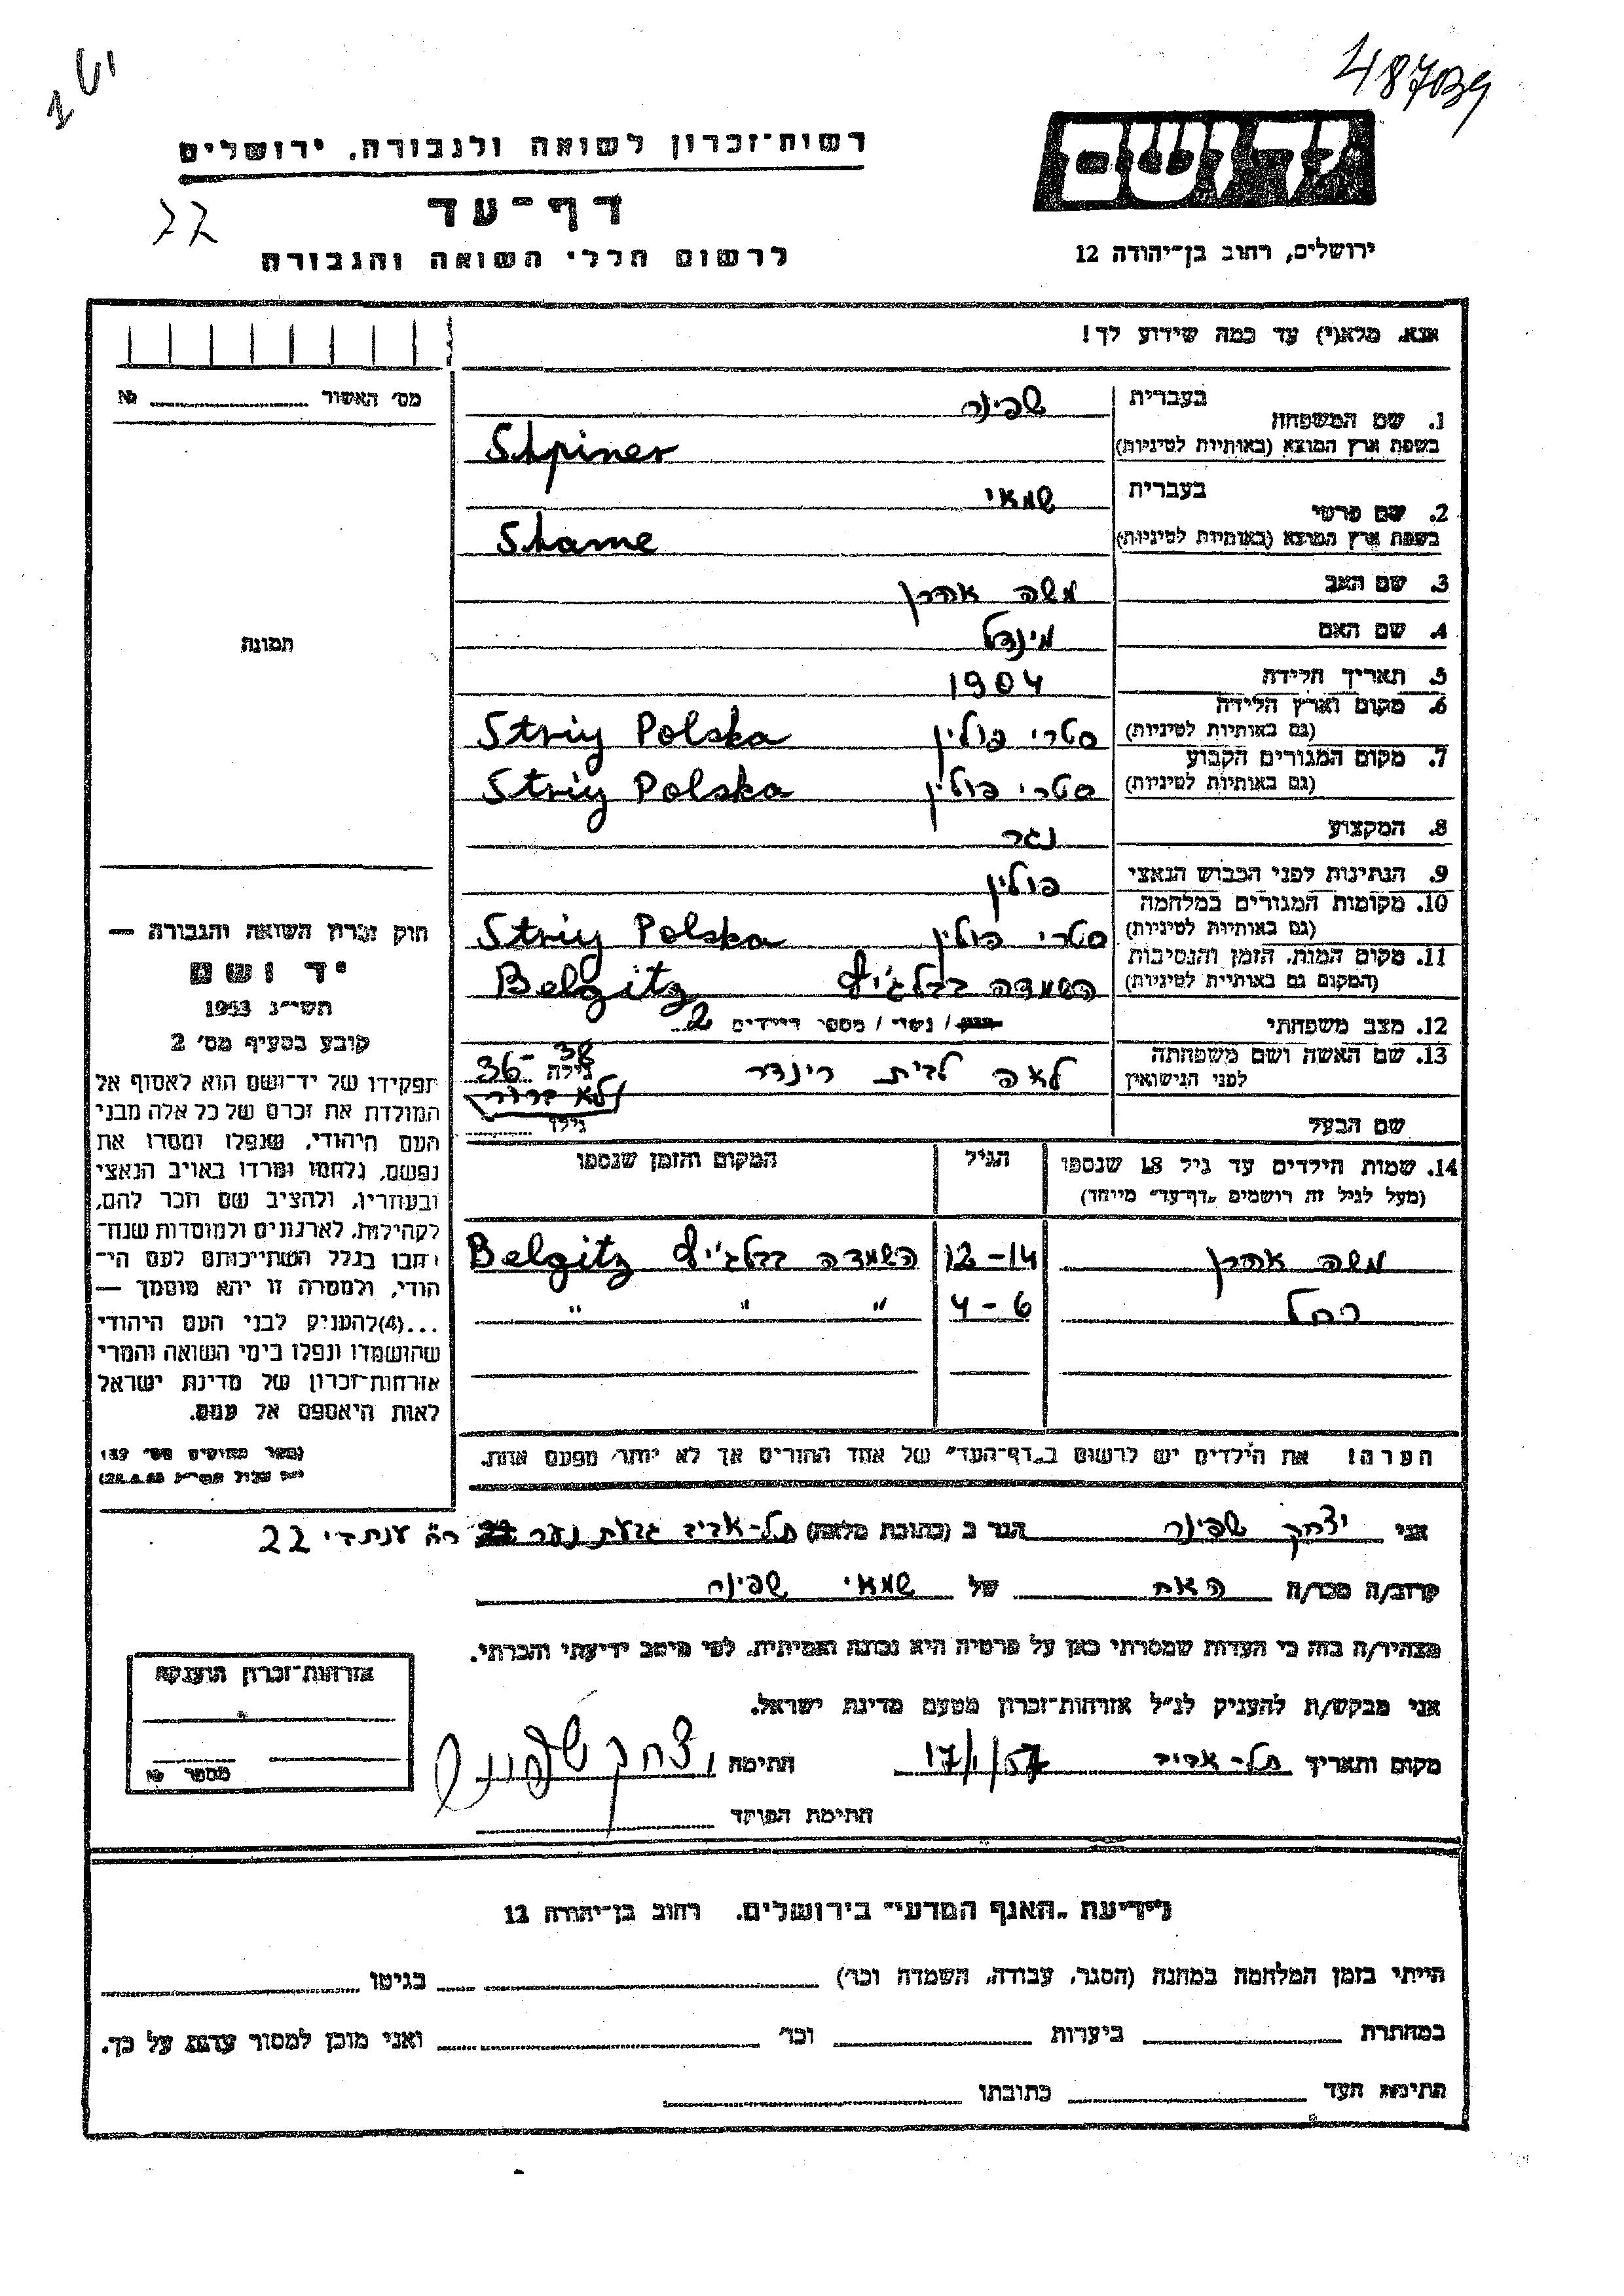 48709
רשות־זכרון לשואה ולגבורה, ירושלים
יד ושם
דף־עד
22
לרשום חללי השואה והגבורה
ירושלים, רחוב בן־יהודה 12
אנא, מלא(י) עד כמה שידוע לך!
מס׳ האשור № 
1. שם המשפחה
בעברית שפינר
בשפת ארץ המוצא (באותיות לטיניות) Shpiner
2. שם פרטי
בעברית שמאי
בשפת ארץ המוצא (באותיות לטיניות) Shame
3. שם האב משה אהרן
4. שם האם מינדל
5. תאריך הלידה 1904
6. מקום וארץ הלידה (גם באותיות לטיניות) סטרי פולין Striy Polska
7. מקום המגורים הקבוע (גם באותיות לטיניות) סטרי פולין Striy Polska
8. המקצוע נגר
9. הנתינות לפני הכבוש הנאצי פולין
10. מקומות המגורים במלחמה (גם באותיות לטיניות) סטרי פולין Striy Polska
11. מקום המות, הזמן והנסיבות (המקום גם באותיות לטיניות) השמדה בבלג'יץ Belgitz
12. מצב משפחתי / נשוי / מספר הילדים 2
13. שם האשה ושם משפחתה לפני הנישואין לאה לבית רינדר גילה 36-38
לא ברור
שם הבעל גילו
תמונה
חוק זכרון השואה והגבורה —
יד ושם
תשי״ג 1953
קובע בסעיף מס׳ 2
תפקידו של יד־ושם הוא לאסוף אל
המולדת את זכרם של כל אלה מבני
העם היהודי, שנפלו ומסרו את
נפשם, נלחמו ומרדו באויב הנאצי
ובעוזריו, ולהציב שם וזכר להם,
לקהילות, לארגונים ולמוסדות שנח־
רבו בגלל השתייכותם לעם הי־
הודי, ולמטרה זו יהא מוסמך —
...(4) להעניק לבני העם היהודי
שהושמדו ונפלו בימי השואה והמרי
אזרחות־זכרון של מדינת ישראל
לאות היאספם אל עמם.
14. שמות הילדים עד גיל 18 שנספו הגיל המקום והזמן שנספו
(מעל לגיל זה רושמים „דף־עד״ מיוחד)
משה אהרן 12-14 השמדה בבלג'יץ Belgitz
רחל 4-6 " " "
הערה! את הילדים יש לרשום ב„דף־העד״ של אחד ההורים אך לא יותר מפעם אחת.
אני יצחק שפינר הגר ב (כתובת מלאה) תל-אביב גבעת נער 22
קרוב/ה מכר/ה האח של שמאי שפינר
מצהיר/ה בזה כי העדות שמסרתי כאן על פרטיה היא נכונה ואמיתית, לפי מיטב ידיעתי והכרתי.
אני מבקש/ת להעניק לנ״ל אזרחות־זכרון מטעם מדינת ישראל.
מקום ותאריך תל-אביב 17/1/57 חתימה יצחק שפינר
חתימת הפוקד
אזרחות־זכרון הוענקה
מספר №
לידיעת „האגף המדעי״ בירושלים, רחוב בן־יהודה 12
הייתי בזמן המלחמה במחנה (הסגר, עבודה, השמדה וכו׳) בגיטו
במחתרת ביערות וכו׳ ואני מוכן למסור עדות על כך.
חתימת העד כתובתו